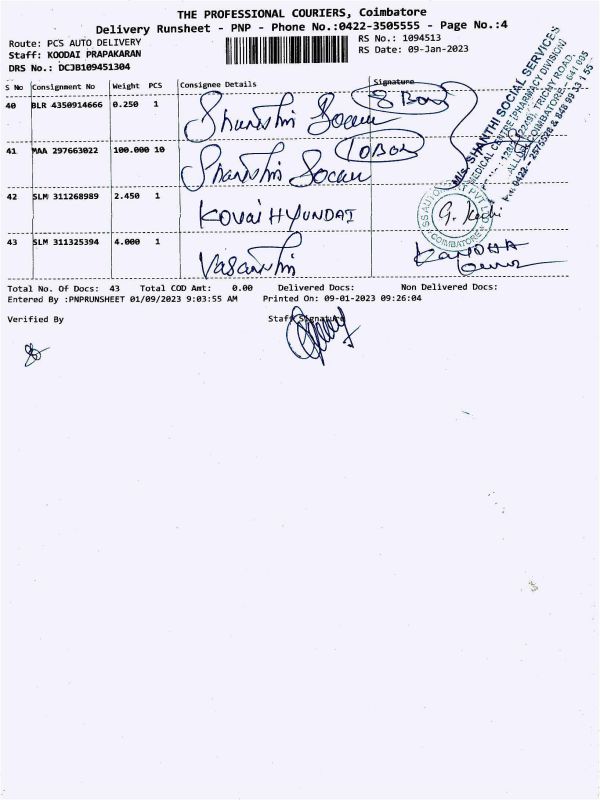 THE PROFESSIONAL COURIERS, Coimbatore
Delivery Runsheet - PNP - Phone No.:0422-3505555 - Page No.:4
Route: PCS AUTO DELIVERY
RS No.: 1094513
Staff: KOODAI PRAPAKARAN
RS Date: 09-Jan-2023
DRS No.: DCJB109451304
S No Consignment No Weight PCS Consignee Details Signature
40 BLR 4350914666 0.250 1 Shanthi Socau 8 Box
41 MAA 297663022 100.000 10 Shanthi Socau 10 Box
42 SLM 311268989 2.450 1 KOVAI HYUNDAI
43 SLM 311325394 4.000 1 Vasanthi
M/s. SHANTHI SOCIAL SERVICES
MEDICAL CENTRE (PHARMACY DIVISION)
TRICHY ROAD,
COIMBATORE - 641 005
0422 - 2575528 & 848 99 33 1 55
COIMBATORE
Total No. Of Docs: 43 Total COD Amt: 0.00 Delivered Docs: Non Delivered Docs:
Entered By :PNPRUNSHEET 01/09/2023 9:03:55 AM Printed On: 09-01-2023 09:26:04
Verified By Staff Signature